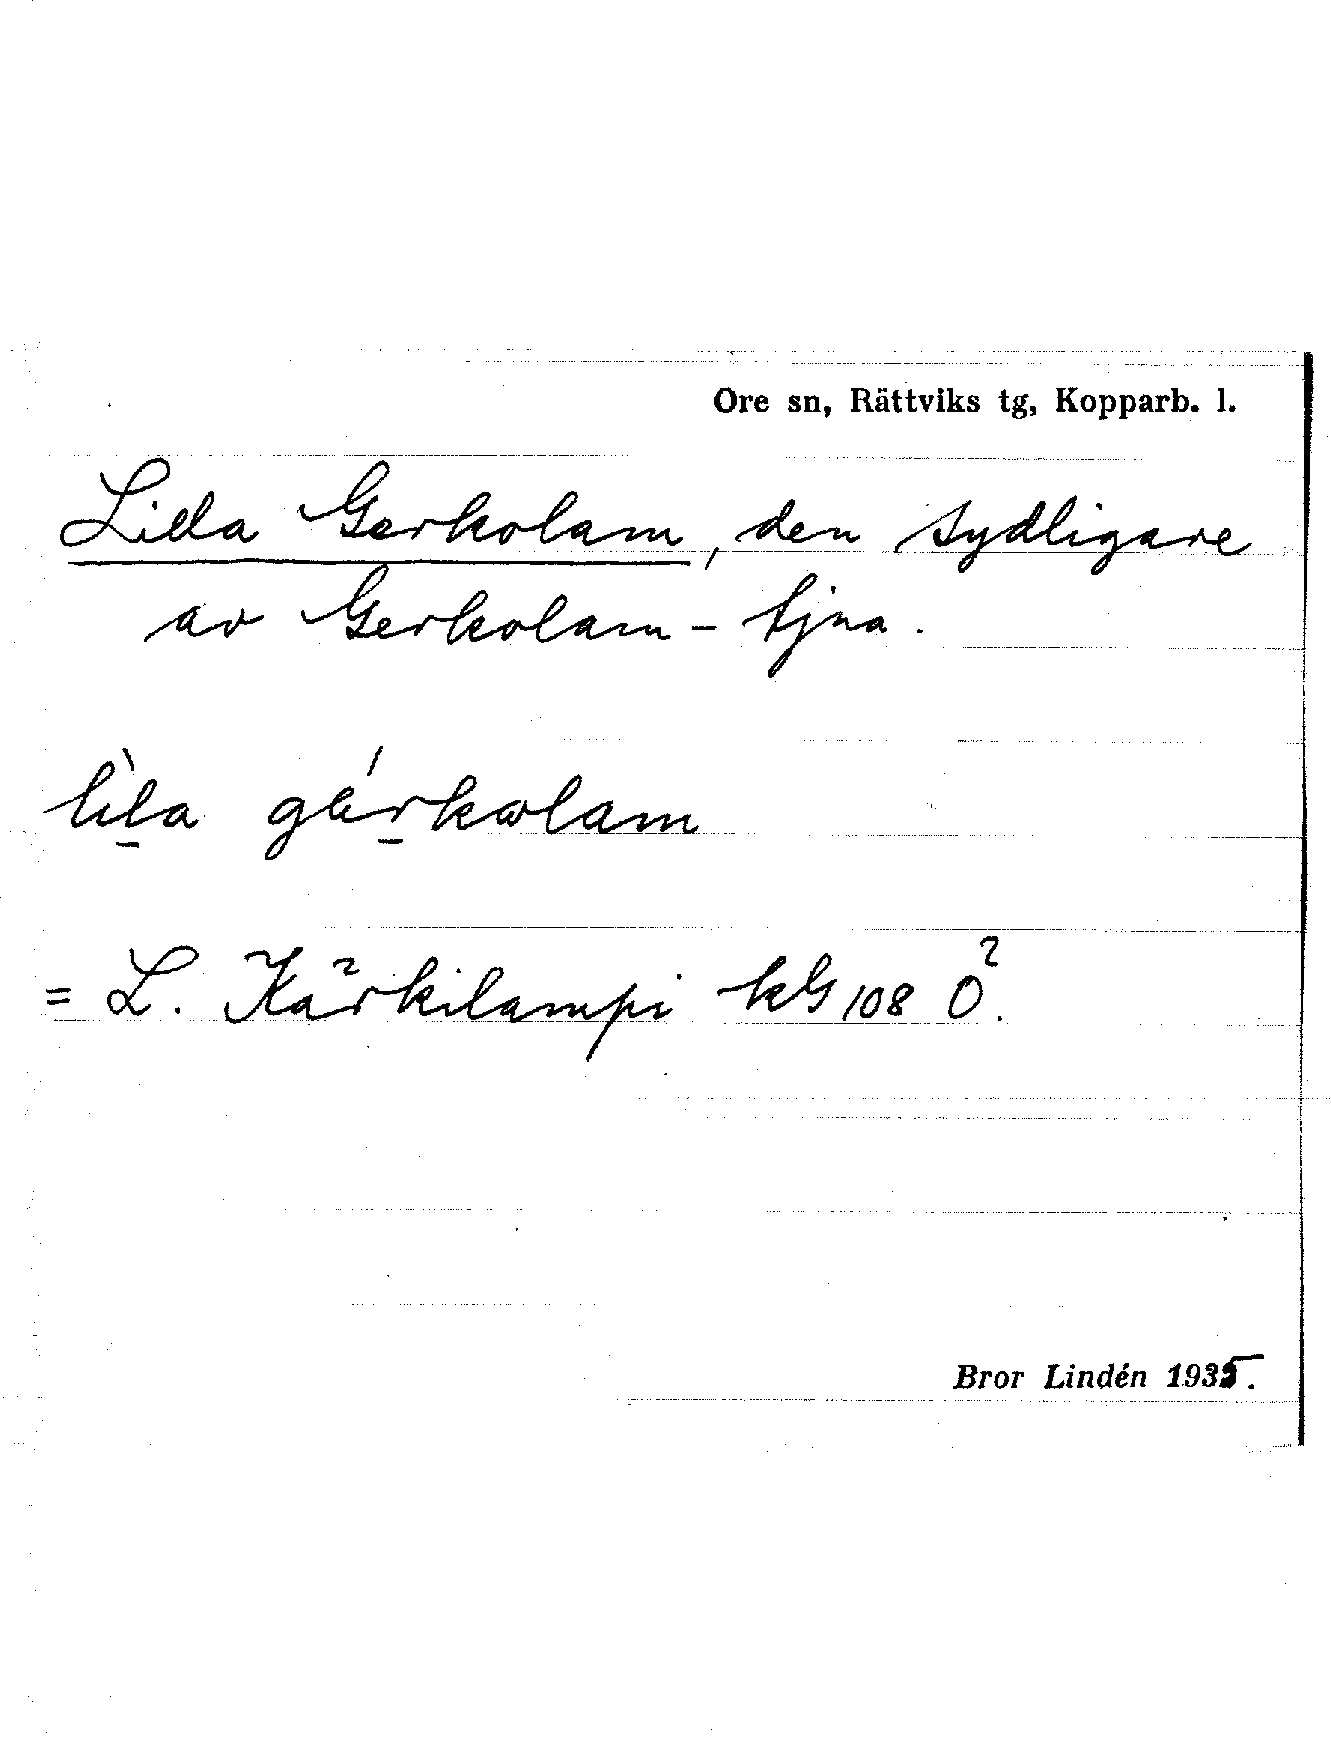 Ore sn, Rättviks tg, Kopparb. l.
Lilla Gerkolam, den sydligare
av Gerkolam-tjna.
lìla gérkωlam
= L. Kärkilampi kG 108 Ö.
Bror Lindén 1935.